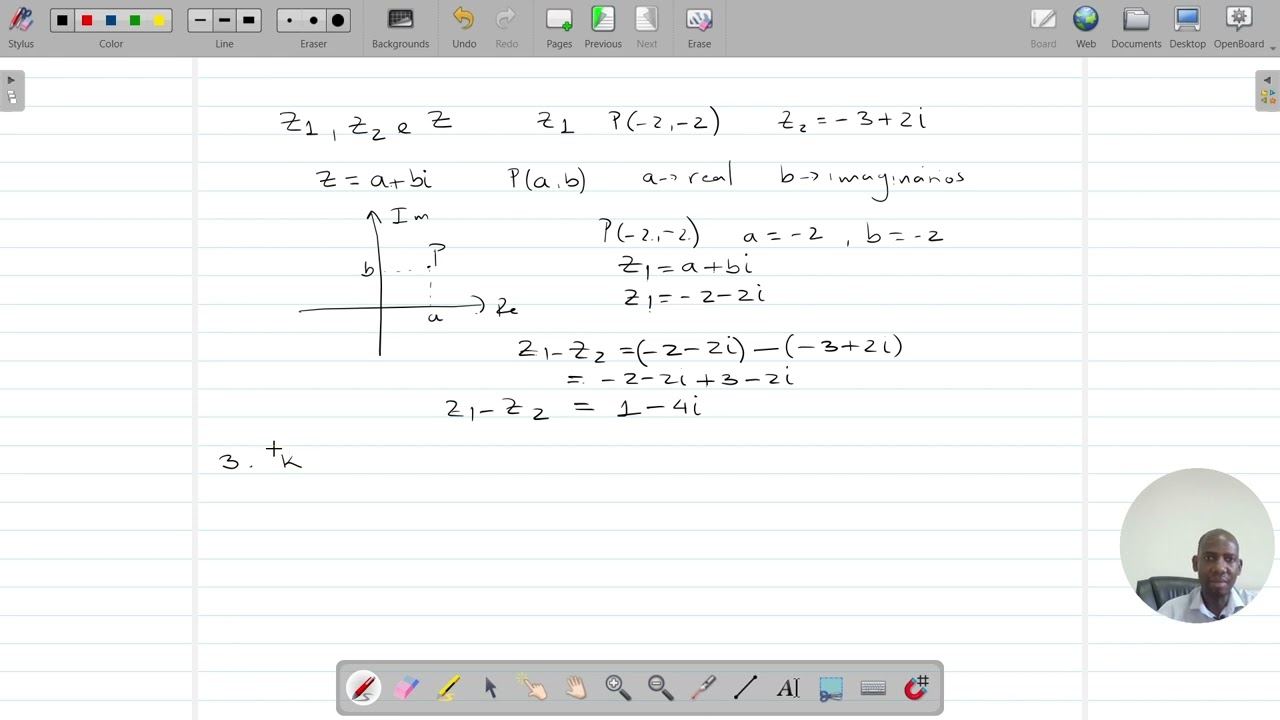 Stylus Color Line Eraser Backgrounds Undo Redo Pages Previous Next Erase Board Web Documents Desktop OpenBoard
Z1, Z2 e Z Z1 P(-2,-2) Z2 = -3+2i
Z = a+bi P(a,b) a→real b→imaginários
Im
P(-2,-2) a = -2 , b = -2
P
b
Z1 = a+bi
Z1 = -2-2i
Re
a
Z1-Z2 = (-2-2i) - (-3+2i)
= -2-2i+3-2i
Z1-Z2 = 1-4i
3. k